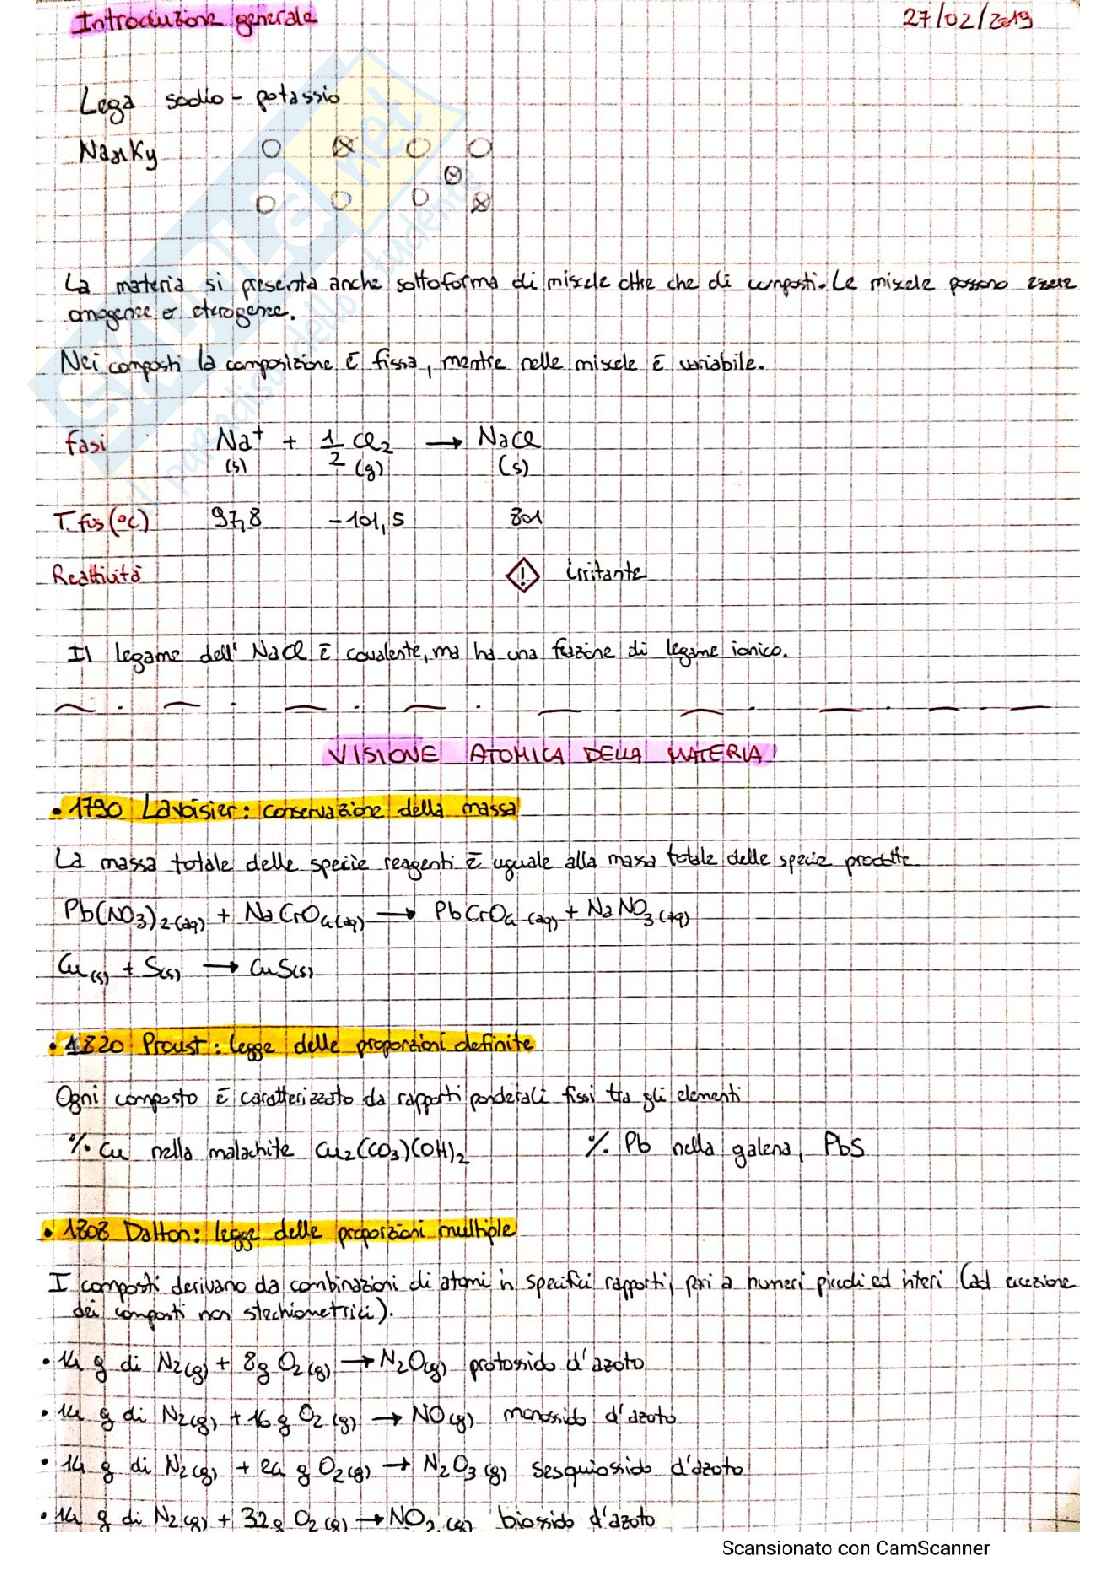 Introduzione generale 27/02/2019
Lega sodio - potassio
NaxKy
La materia si presenta anche sottoforma di miscele oltre che di composti. Le miscele possono essere
omogenee o eterogenee.
Nei composti la composizione è fissa, mentre nelle miscele è variabile.
Fasi Na⁺(s) + 1/2 Cl₂(g) → NaCl(s)
T. fus (°C) 97,8 -101,5 801
Reattività ! irritante
Il legame dell'NaCl è covalente, ma ha una frazione di legame ionico.
VISIONE ATOMICA DELLA MATERIA
• 1790 Lavoisier: conservazione della massa
La massa totale delle specie reagenti è uguale alla massa totale delle specie prodotte
Pb(NO₃)₂(aq) + NaCrO₄(aq) → PbCrO₄(aq) + NaNO₃(aq)
Cu(s) + S(s) → CuS(s)
• 1820 Proust: legge delle proporzioni definite
Ogni composto è caratterizzato da rapporti ponderali fissi tra gli elementi
% Cu nella malachite Cu₂(CO₃)(OH)₂ % Pb nella galena, PbS
• 1808 Dalton: legge delle proporzioni multiple
I composti derivano da combinazioni di atomi in specifici rapporti, pari a numeri piccoli ed interi (ad eccezione
dei composti non stechiometrici).
• 14 g di N₂(g) + 8g O₂(g) → N₂O(g) protossido d'azoto
• 14 g di N₂(g) + 16 g O₂(g) → NO(g) monossido d'azoto
• 14 g di N₂(g) + 24 g O₂(g) → N₂O₃(g) sesquiossido d'azoto
• 14 g di N₂(g) + 32g O₂(g) → NO₂(g) biossido d'azoto
Scansionato con CamScanner